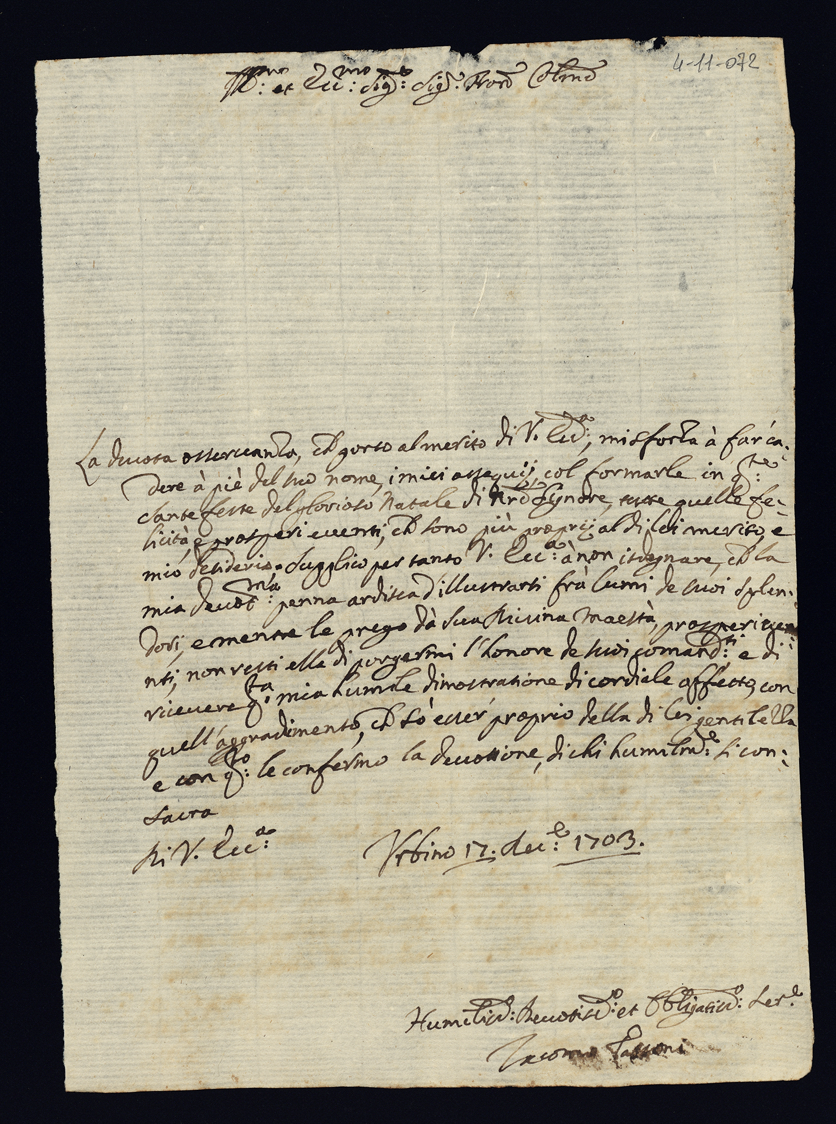 4-11-072
Ill:mo et Ecc:mo Sig:e Sig:r Pron Colmo
La devota osservanza, ch porto al merito di V. Ecc:a, mi sforza à far ca-
dere à piè del suo nome, i miei ossequij, col formarle in q:te
sante feste del glorioso Natale di Nro Signore, tutte quelle fe-
licità, e prosperi eventi, ch sono più proprij al di lei merito, e
mio desiderio. Supplico per tanto V. Ecc:a à non isdegnare, ch la
mia devot:ma penna ardisca d'illustrarsi frà lumi de suoi splen-
dori, e mentre le prego dà Sua Divina Maestà, prosperi even-
nti, non resti ella di porgermi l'honore de suoi comand:ti e di
ricevere q:ta mia humile dimostratione di cordiale affetto, con
quell'aggradimento, ch sò esser proprio della di lei gentilezza
e con q:to le confermo la devotione, di chi humilm:e si con-
sacra
Di V. Ecc:a
Urbino 17. dec:e 1703.
Humiliss: Devotiss:o et Obligatiss: Ser:e
Iacomo